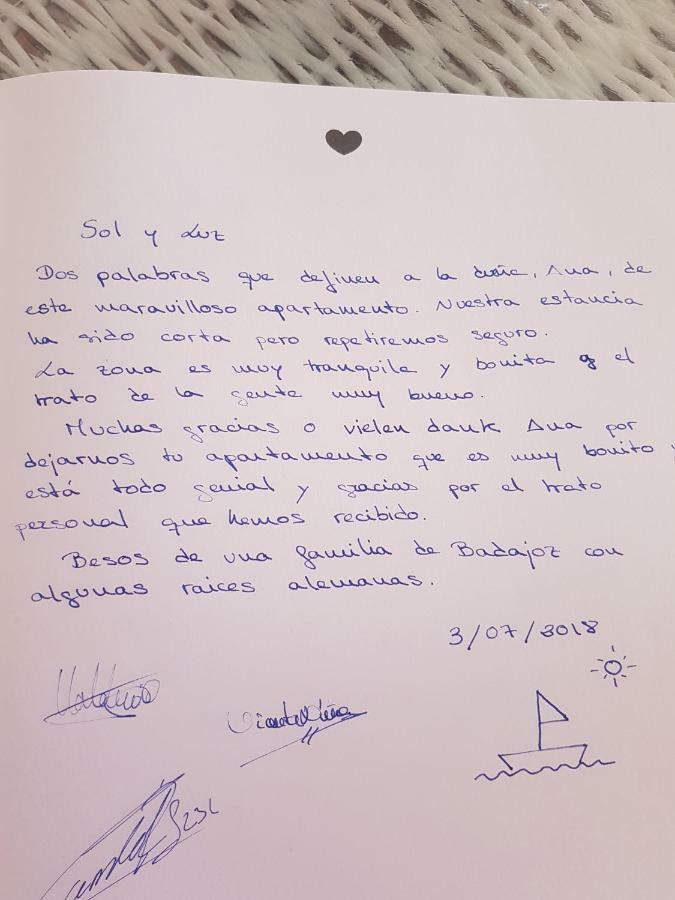 Sol y Luz
Dos palabras que definen a la dueña, Ana, de
este maravilloso apartamento. Nuestra estancia
ha sido corta pero repetiremos seguro.
La zona es muy tranquila y bonita y el
trato de la gente muy bueno.
Muchas gracias o vielen dank Ana por
dejarnos tu apartamento que es muy bonito y
está todo genial y gracias por el trato
personal que hemos recibido.
Besos de una familia de Badajoz con
algunas raices alemanas.
3/07/2018